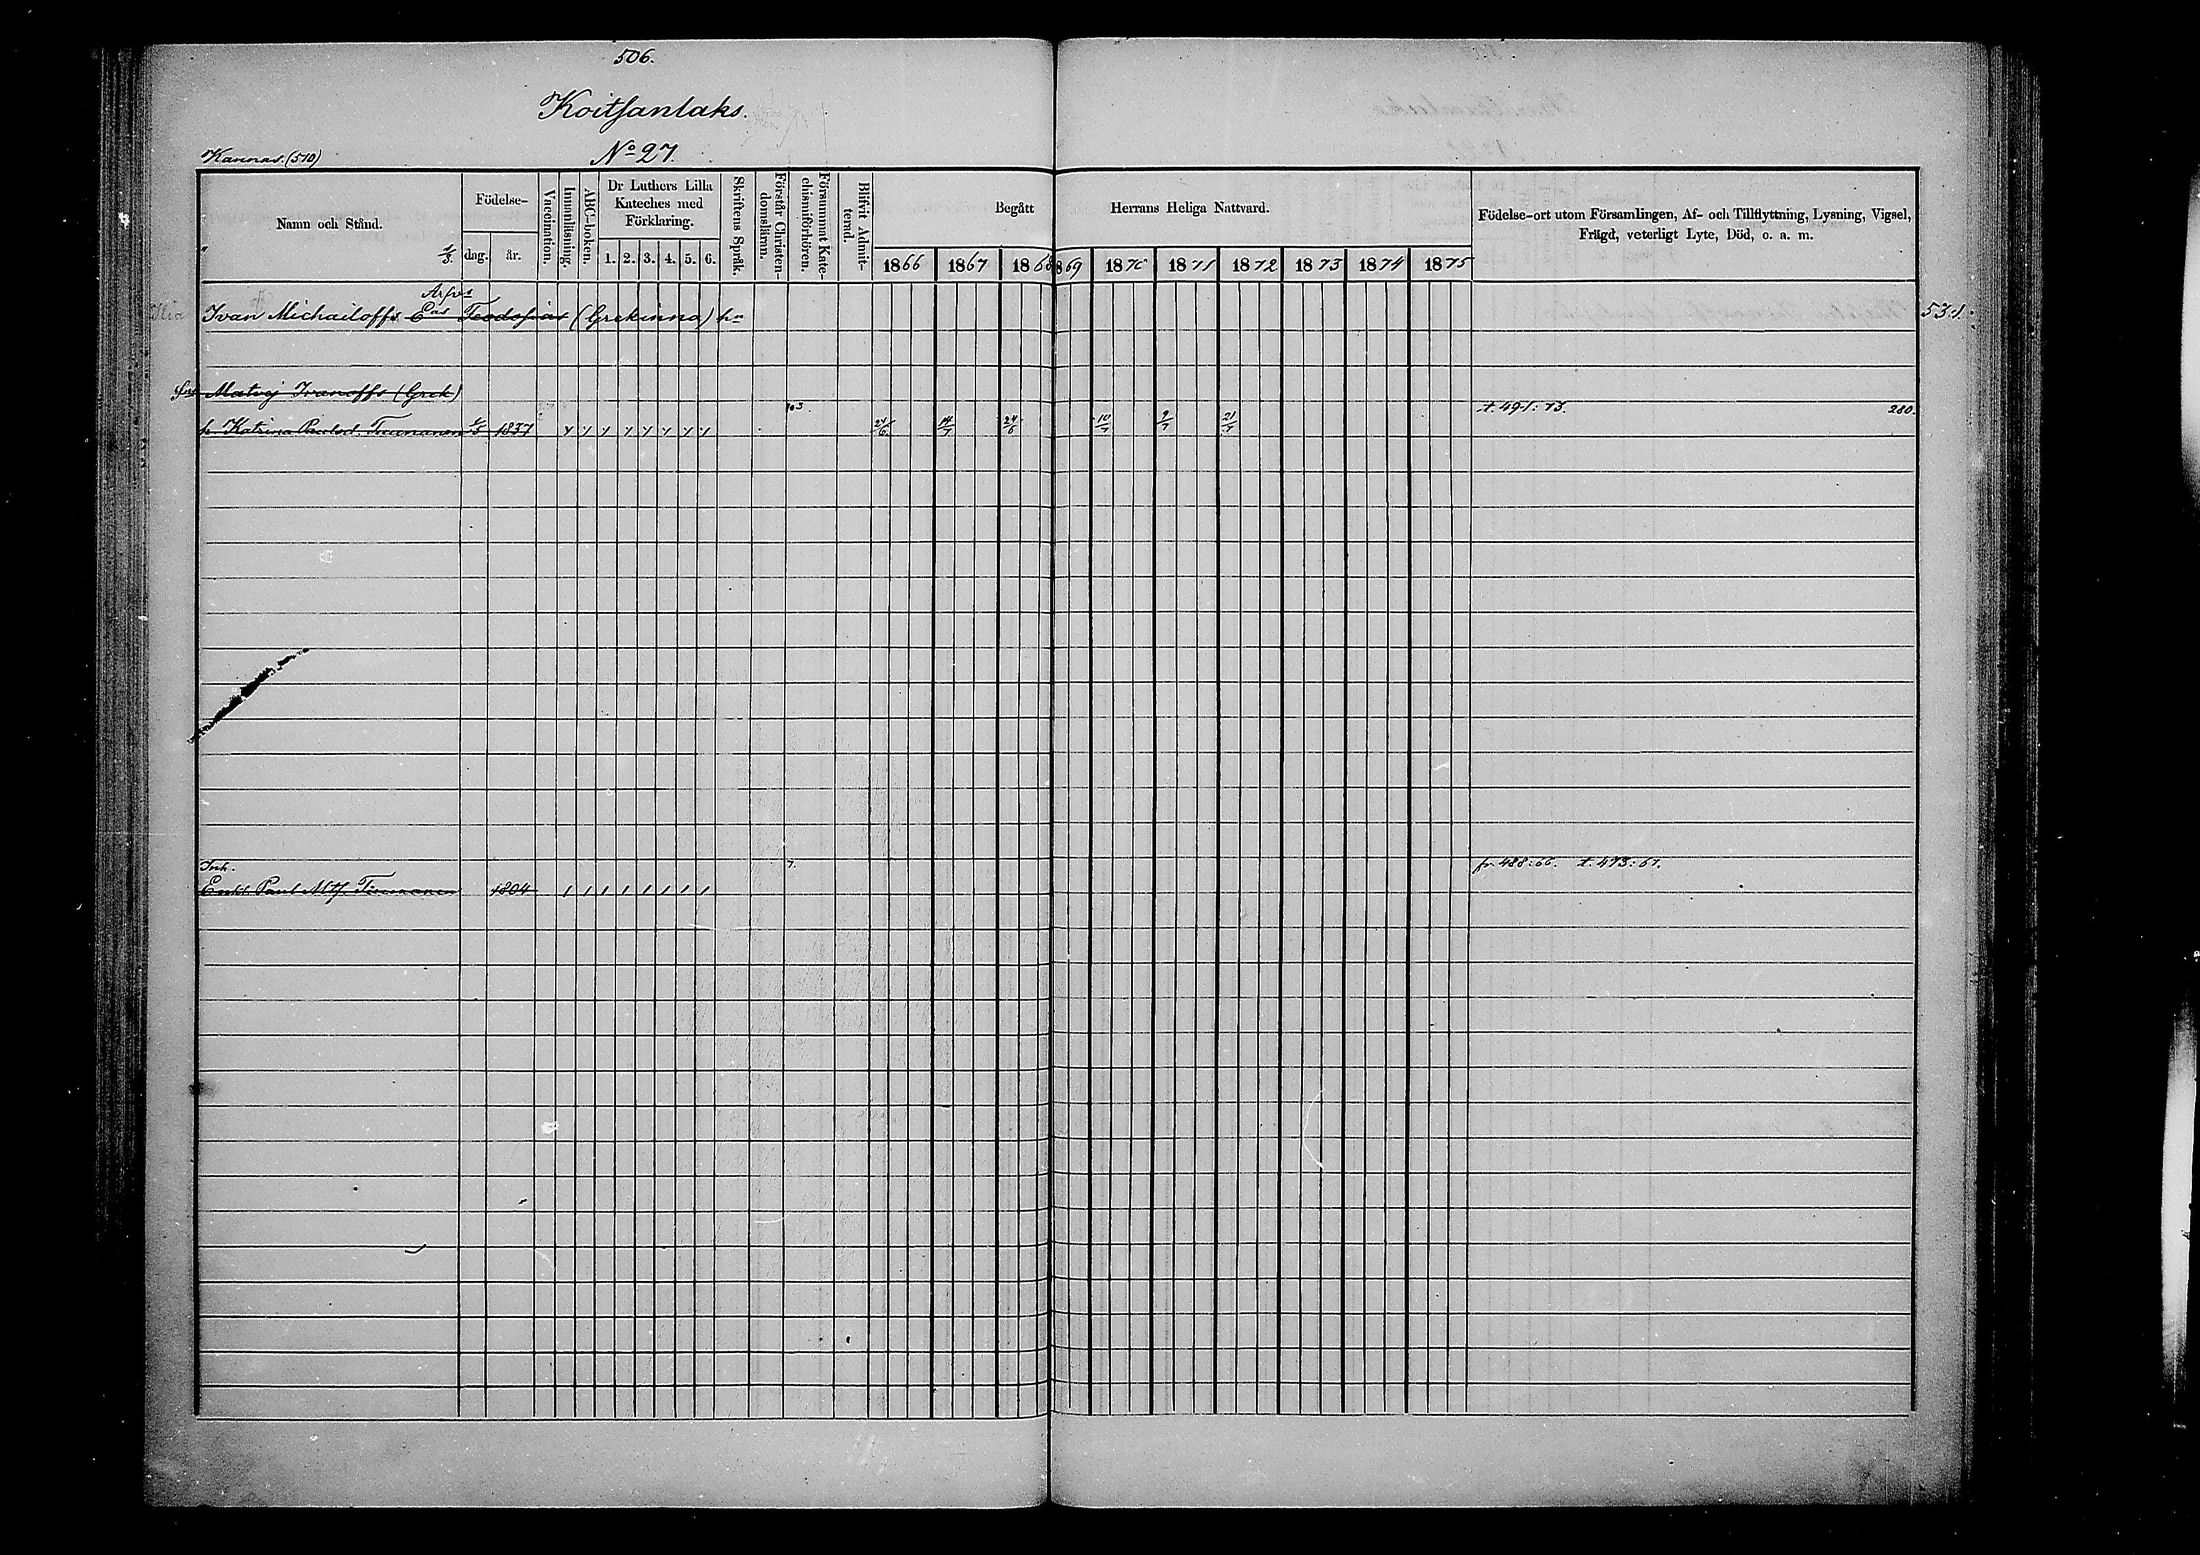 506.
Koitsanlaks.
Kannas. (510)
No 27.
Namn och Stånd.
Födelse-
dag.
år.
Vaccination.
Innanläsning.
ABC-boken.
Dr Luthers Lilla Kateches med Förklaring.
1. 2. 3. 4. 5. 6.
Skriftens Språk.
Förstår Christendomsläran.
Försummat Katechismiförhören.
Blifvit Admitterad.
Begått Herrans Heliga Nattvard.
1866 1867 1868 1869 1870 1871 1872 1873 1874 1875
Födelse-ort utom Församlingen, Af- och Tillflyttning, Lysning, Vigsel,
Frägd, veterligt Lyte, Död, o. a. m.
Arfvs
Ivan Michailoffs Eas Teodosias (Grekinna) hn 531.
Matvej Ivanoffs (Grek)
t. 491: 73. 280.
h. Katrina Paulsd. Tiumanen 1837 24/6 14/7 24/6 10/7 9/7 21/7
Inh. 7. fr. 488: 66. t. 473: 67.
Enkl. Paul Mtss. Tiumanen 1804